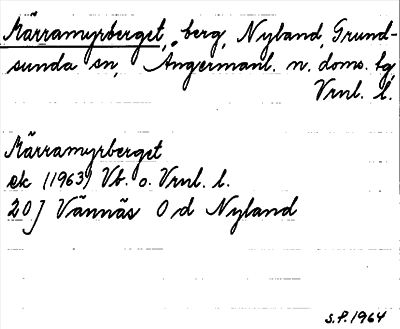 Märramyrberget, berg, Nyland, Grund-
sunda sn, Ångermanl. n. doms. tg,
Vrnl. l.
Märramyrberget
ek (1963) Vb. o. Vrnl. l.
20J Vännäs Od Nyland
S.P. 1964